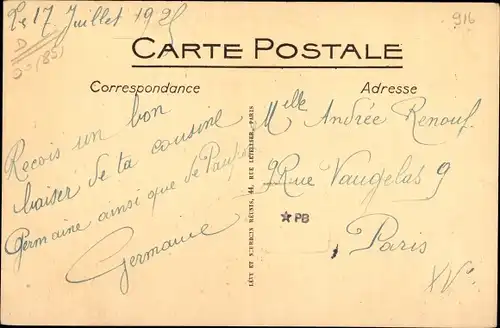 Le 17 Juillet 1925
916
D
CARTE POSTALE
Correspondance
Adresse
Recois un bon
baiser de ta cousine
Germaine ainsi que de
Germaine
LÉVY ET NEURDEIN RÉUNIS, 44, RUE LETELLIER, PARIS
Melle Andrée Renouf
9 Rue Vaugelas 9
★PB
Paris
XVe